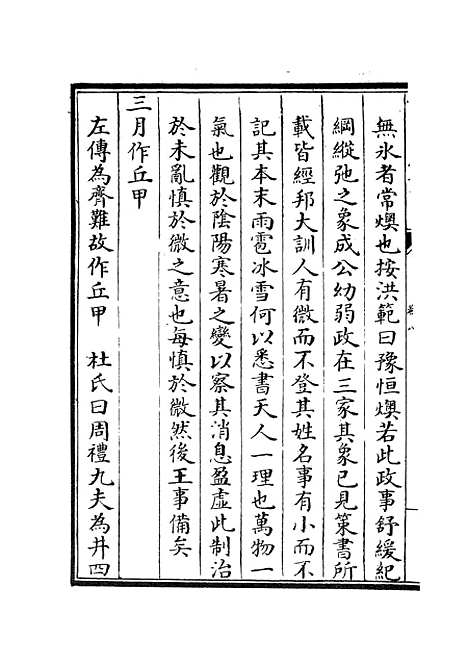 無氷者常燠也按洪範曰豫恒燠若此政事舒緩紀
綱縱弛之象成公幼弱政在三家其象已見策書所
載皆經邦大訓人有微而不登其姓名事有小而不
記其本末雨雹冰雪何以悉書天人一理也萬物一
氣也觀於陰陽寒暑之變以察其消息盈虛此制治
於未亂慎於微之意也每慎於微然後王事備矣
三月作丘甲
左傳為齊難故作丘甲　杜氏曰周禮九夫為井四